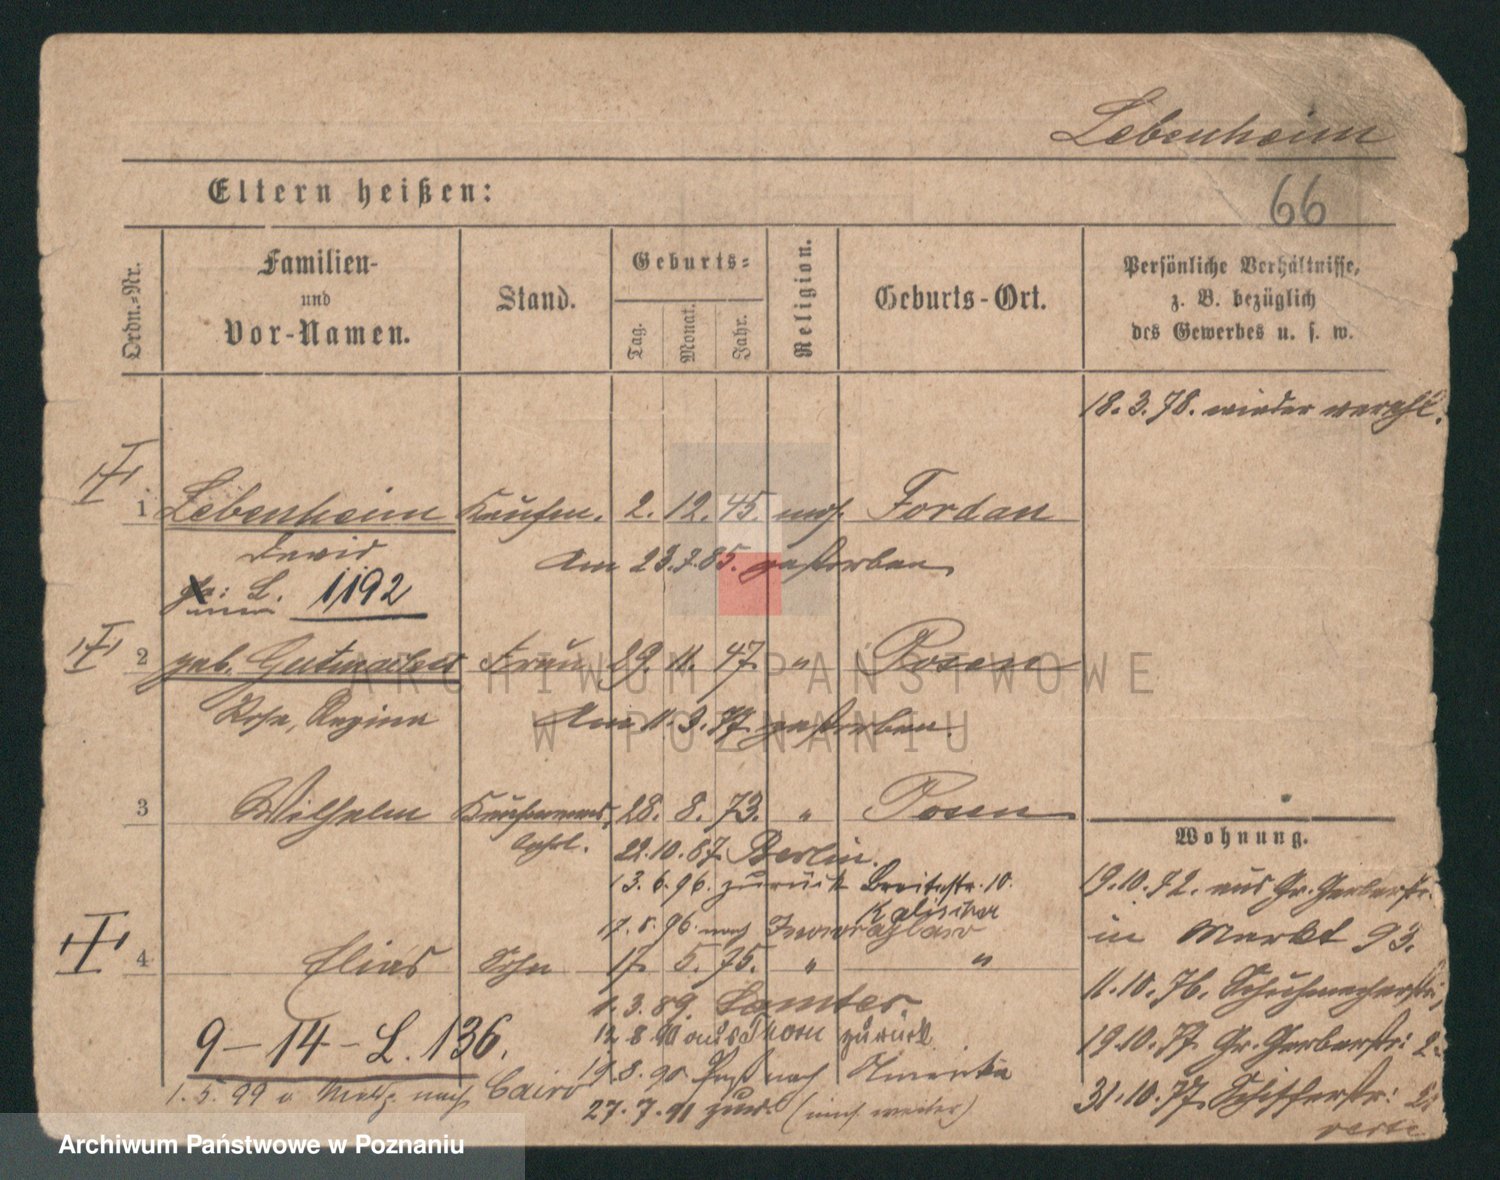 Lebenheim
Eltern heißen:
66
Ordn.-Nr.
Familien-
und
Vor-Namen.
Stand.
Geburts-
Tag.
Monat.
Jahr.
Religion.
Geburts-Ort.
Persönliche Verhältnisse,
z. B. bezüglich
des Gewerbes u. s. w.
18. 3. 78. wieder verehl.
1 Lebenheim Kaufm. 2. 12. 45. mos. Fordon
David
Am 23.7.85. gestorben
L. 1192
2 geb. Frau 29. 11. 47. " Posen
Rosa, Regina
Am 11. 3. 77 gestorben.
3 Wilhelm 28. 8. 73. " Posen
22. 10. 87. Berlin.
13. 6. 96. zurück Breitestr. 10.
Kalischer
17. 8. 96. nach Inowrazlaw
4 Elias Sohn 17 5. 75. " "
1. 3. 89.
9 – 14 – L. 136.
12 8 90 aus Thorn zurück
19. 8. 90 Paß nach Amerika
1. 5. 99 nach Cairo
27. 7. 91 zurück
Wohnung.
19. 10. 72. aus Gr. Gerberstr.
in Markt 93.
11. 10. 76. Schuhmacherstr.
19. 10. 77 Gr. Gerberstr: 2
31. 10. 77. Schifferstr:
ARCHIWUM PAŃSTWOWE
W POZNANIU
Archiwum Państwowe w Poznaniu